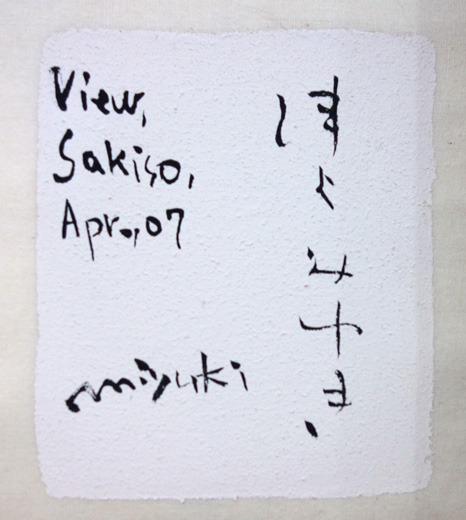 View,
Sakiso,
Apr.,07
miyuki
みゆき